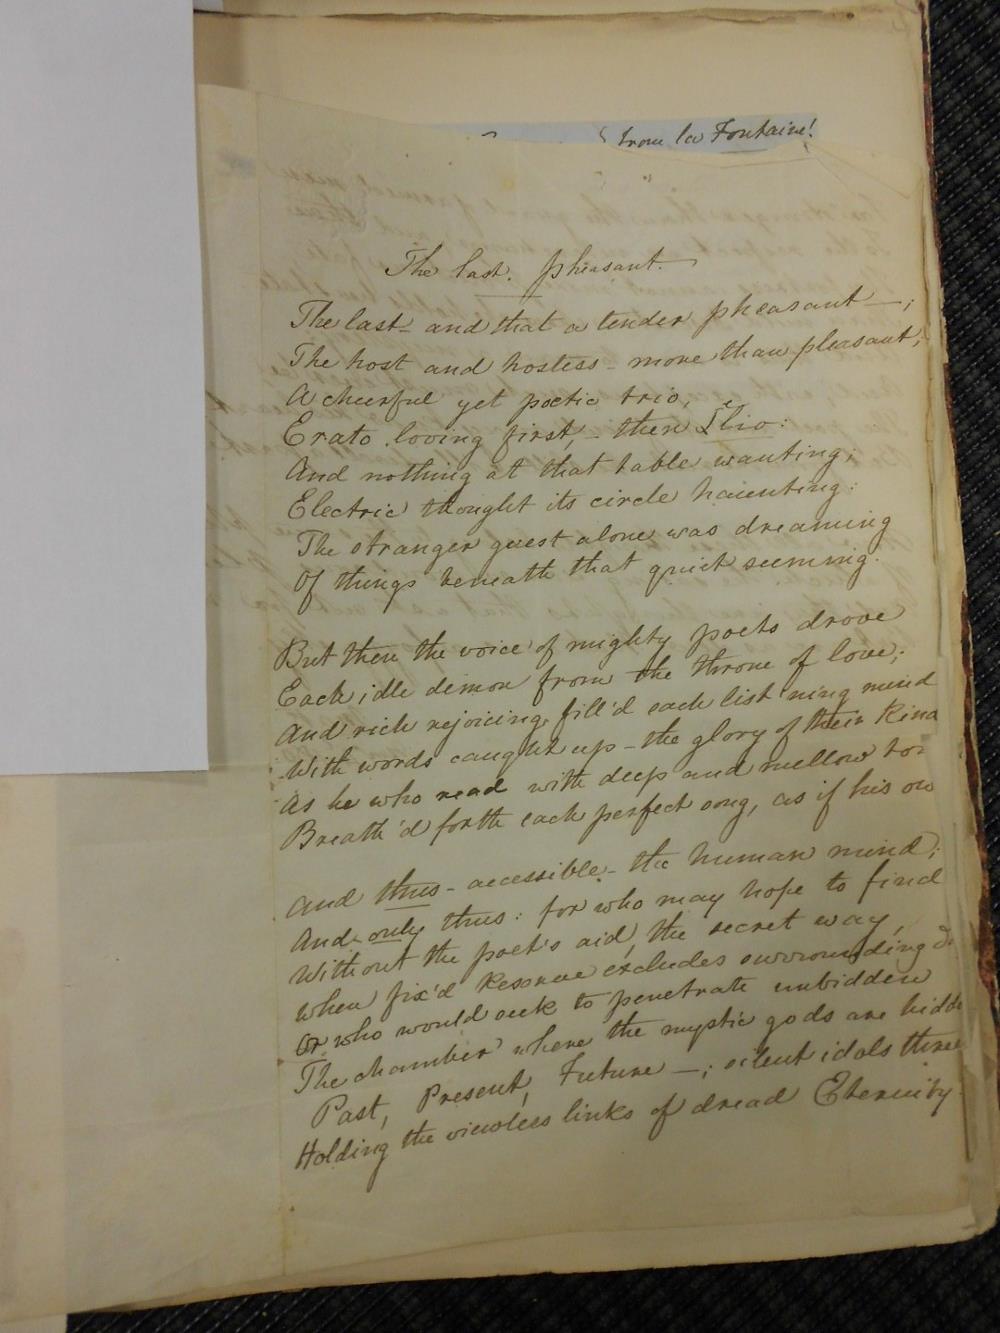 from la Fontaine!
The last. pheasant.
The last - and that a tender pheasant —;
The host and hostess - more than pleasant;
A cheerful yet poetic trio,
Erato loving first, - then Clio:
And nothing at that table wanting;
Electric thought its circle haunting:
The stranger guest alone was dreaming
Of things beneath that quiet seeming.
But then the voice of mighty poets drove
Each idle demon from the throne of love;
And rich rejoicing fill'd each list'ning mind
With words caught up - the glory of their kind
As he who read with deep and mellow to
Breath'd forth each perfect song, as if his ow
And thus - accessible - the human mind;
And only thus: for who may hope to find
Without the poet's aid, the secret way,
When fix'd Reserve excludes surrounding d
Or who would seek to penetrate unbidden
The chamber where the mystic gods are hidd
Past, Present, Future —; silent idols three
Holding the viewless links of dread Eternity